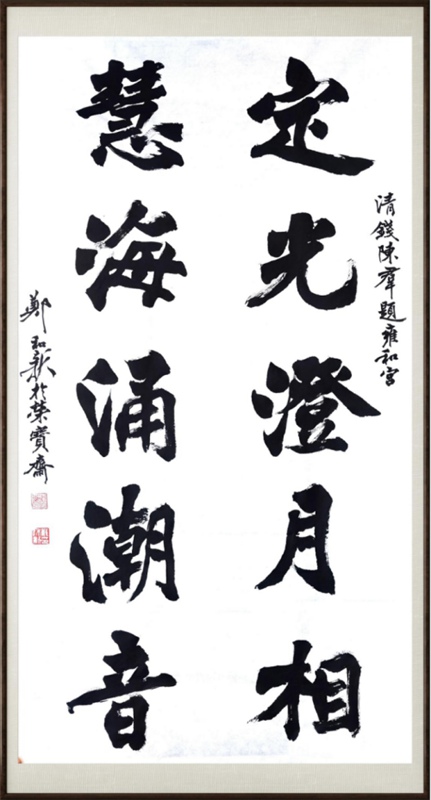 清錢陳羣題雍和宮
定光澄月相
慧海涌潮音
鄭和秋於榮寶齋